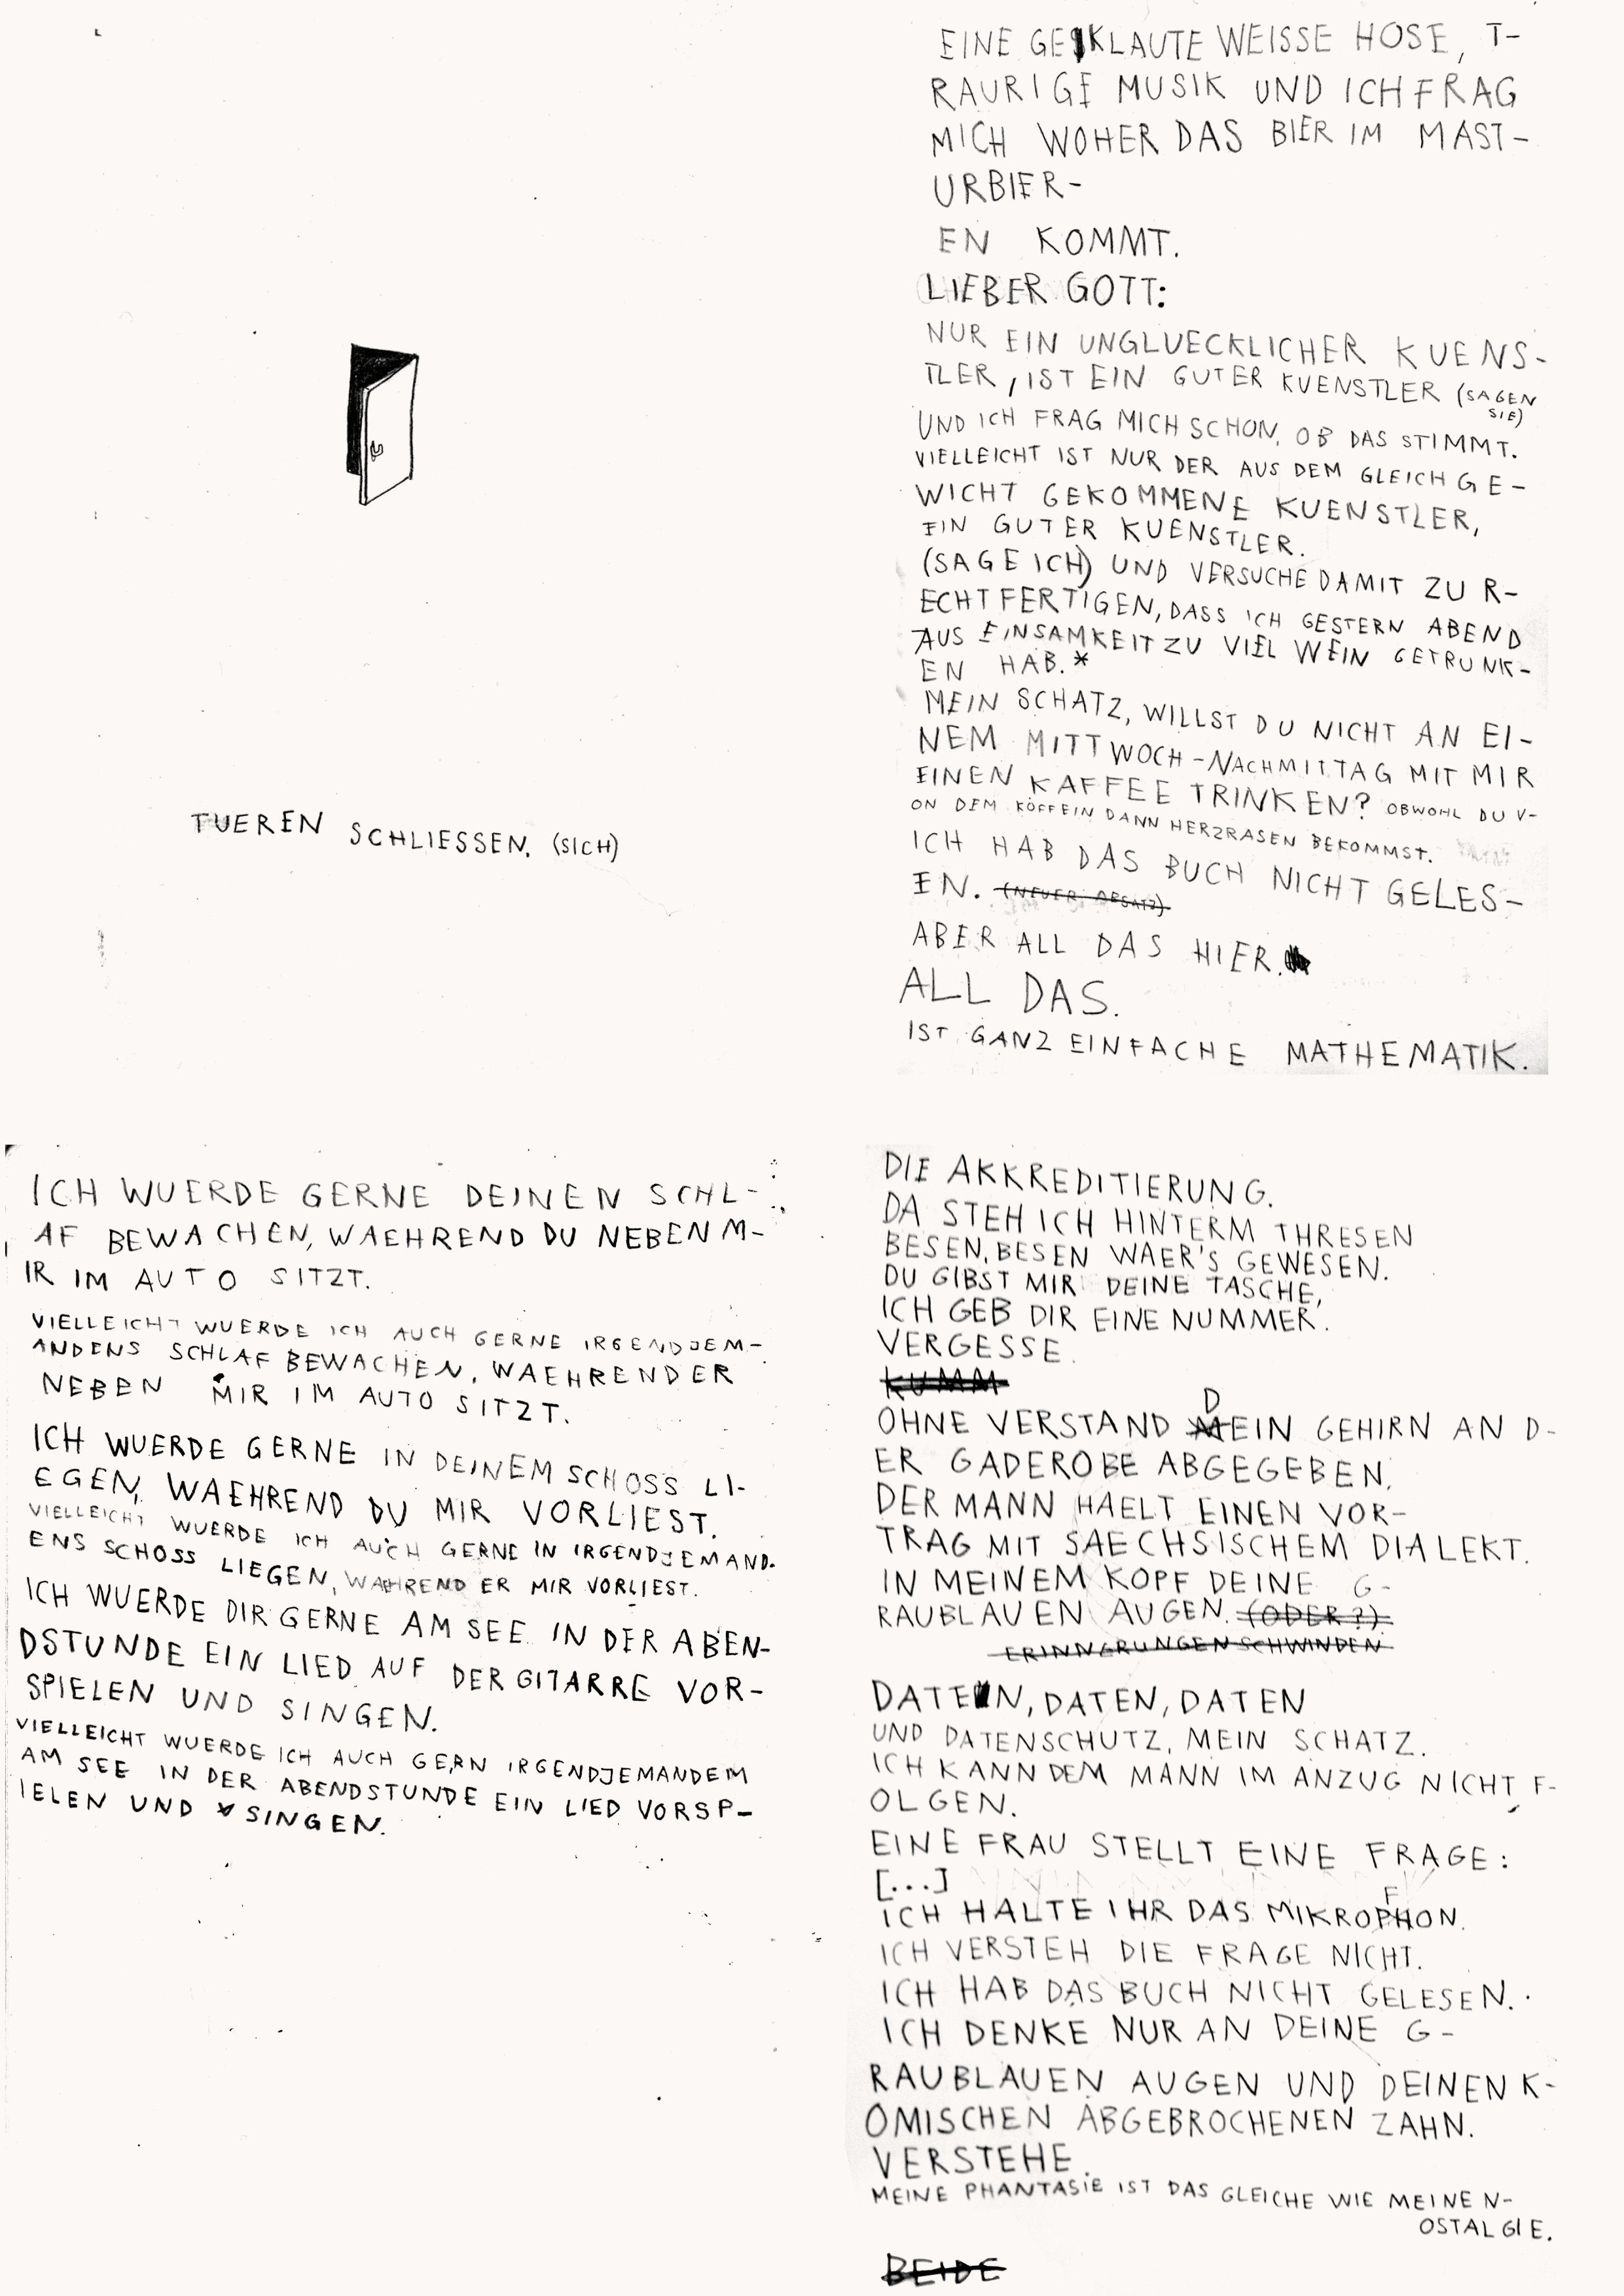 TUEREN SCHLIESSEN. (SICH)
EINE GEKLAUTE WEISSE HOSE, T-
RAURIGE MUSIK UND ICH FRAG
MICH WOHER DAS BIER IM MAST-
URBIER-
EN KOMMT.
LIEBER GOTT:
NUR EIN UNGLUECKLICHER KUENS-
TLER, IST EIN GUTER KUENSTLER (SAGEN
SIE)
UND ICH FRAG MICH SCHON, OB DAS STIMMT.
VIELLEICHT IST NUR DER AUS DEM GLEICHGE-
WICHT GEKOMMENE KUENSTLER,
EIN GUTER KUENSTLER.
(SAGE ICH) UND VERSUCHE DAMIT ZU R-
ECHTFERTIGEN, DASS ICH GESTERN ABEND
AUS EINSAMKEIT ZU VIEL WEIN GETRUNK-
EN HAB.*
MEIN SCHATZ, WILLST DU NICHT AN EI-
NEM MITTWOCH-NACHMITTAG MIT MIR
EINEN KAFFEE TRINKEN? OBWOHL DU V-
ON DEM KOFFEIN DANN HERZRASEN BEKOMMST.
ICH HAB DAS BUCH NICHT GELES-
EN. (NEUER ABSATZ)
ABER ALL DAS HIER.
ALL DAS.
IST GANZ EINFACHE MATHEMATIK.
ICH WUERDE GERNE DEINEN SCHL-
AF BEWACHEN, WAEHREND DU NEBEN M-
IR IM AUTO SITZT.
VIELLEICHT WUERDE ICH AUCH GERNE IRGENDJEM-
ANDENS SCHLAF BEWACHEN, WAEHREND ER
NEBEN MIR IM AUTO SITZT.
ICH WUERDE GERNE IN DEINEM SCHOSS LI-
EGEN, WAEHREND DU MIR VORLIEST.
VIELLEICHT WUERDE ICH AUCH GERNE IN IRGENDJEMAND.
ENS SCHOSS LIEGEN, WAHREND ER MIR VORLIEST.
ICH WUERDE DIR GERNE AM SEE IN DER ABEN-
DSTUNDE EIN LIED AUF DER GITARRE VOR-
SPIELEN UND SINGEN.
VIELLEICHT WUERDE ICH AUCH GERN IRGENDJEMANDEM
AM SEE IN DER ABENDSTUNDE EIN LIED VORSP-
IELEN UND SINGEN.
DIE AKKREDITIERUNG.
DA STEH ICH HINTERM THRESEN
BESEN, BESEN WAER'S GEWESEN.
DU GIBST MIR DEINE TASCHE,
ICH GEB DIR EINE NUMMER.
VERGESSE.
KUMM
OHNE VERSTAND DEIN GEHIRN AN D-
ER GADEROBE ABGEGEBEN.
DER MANN HAELT EINEN VOR-
TRAG MIT SAECHSISCHEM DIALEKT.
IN MEINEM KOPF DEINE G-
RAUBLAUEN AUGEN. (ODER?)
ERINNERUNGEN SCHWINDEN
DATEN, DATEN, DATEN
UND DATENSCHUTZ, MEIN SCHATZ.
ICH KANN DEM MANN IM ANZUG NICHT F-
OLGEN.
EINE FRAU STELLT EINE FRAGE:
[...]
ICH HALTE IHR DAS MIKROFON.
ICH VERSTEH DIE FRAGE NICHT.
ICH HAB DAS BUCH NICHT GELESEN.
ICH DENKE NUR AN DEINE G-
RAUBLAUEN AUGEN UND DEINEN K-
OMISCHEN ABGEBROCHENEN ZAHN.
VERSTEHE.
MEINE PHANTASIE IST DAS GLEICHE WIE MEINE N-
OSTALGIE.
BEIDE